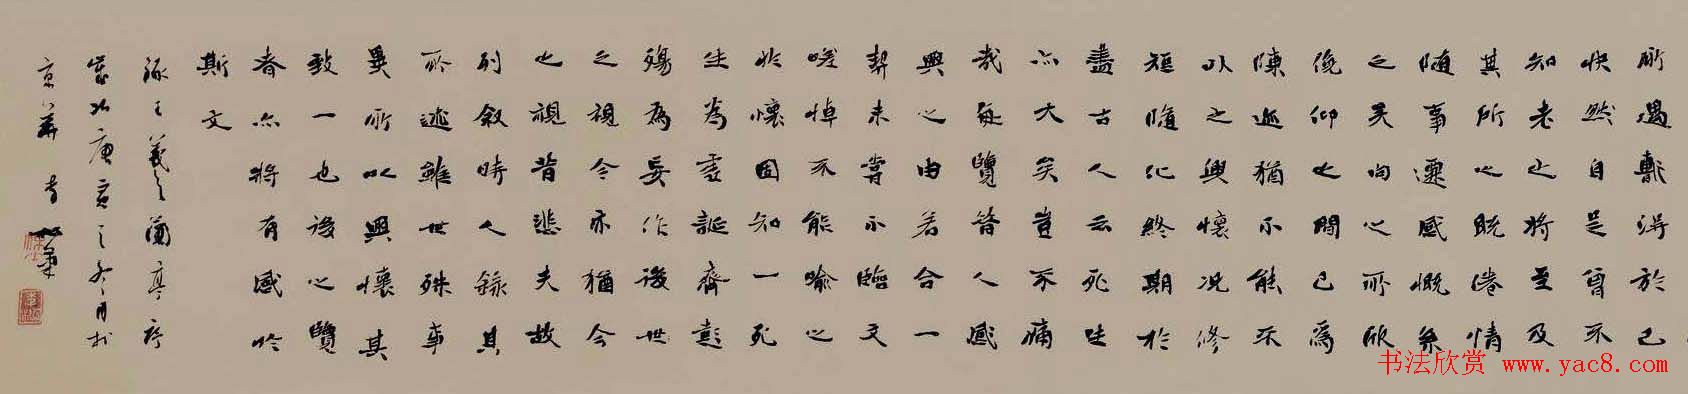 所遇暫得於己
快然自足曾不
知老之將至及
其所之既倦情
隨事遷感慨系
之矣向之所欣
俛仰之間已為
陳迹猶不能不
以之興懷况修
短隨化終期於
盡古人云死生
亦大矣豈不痛
哉每覽昔人感
興之由若合一
契未嘗不臨文
嗟悼不能喻之
於懷固知一死
生為虛誕齊彭
殤為妄作後世
之視今亦猶今
之視昔悲夫故
列敘時人錄其
所述雖世殊事
異所以興懷其
致一也後之覽
者亦將有感於
斯文
錄王羲之蘭亭序
歲次庚寅之冬月於
京華
书法欣赏 www.yac8.com